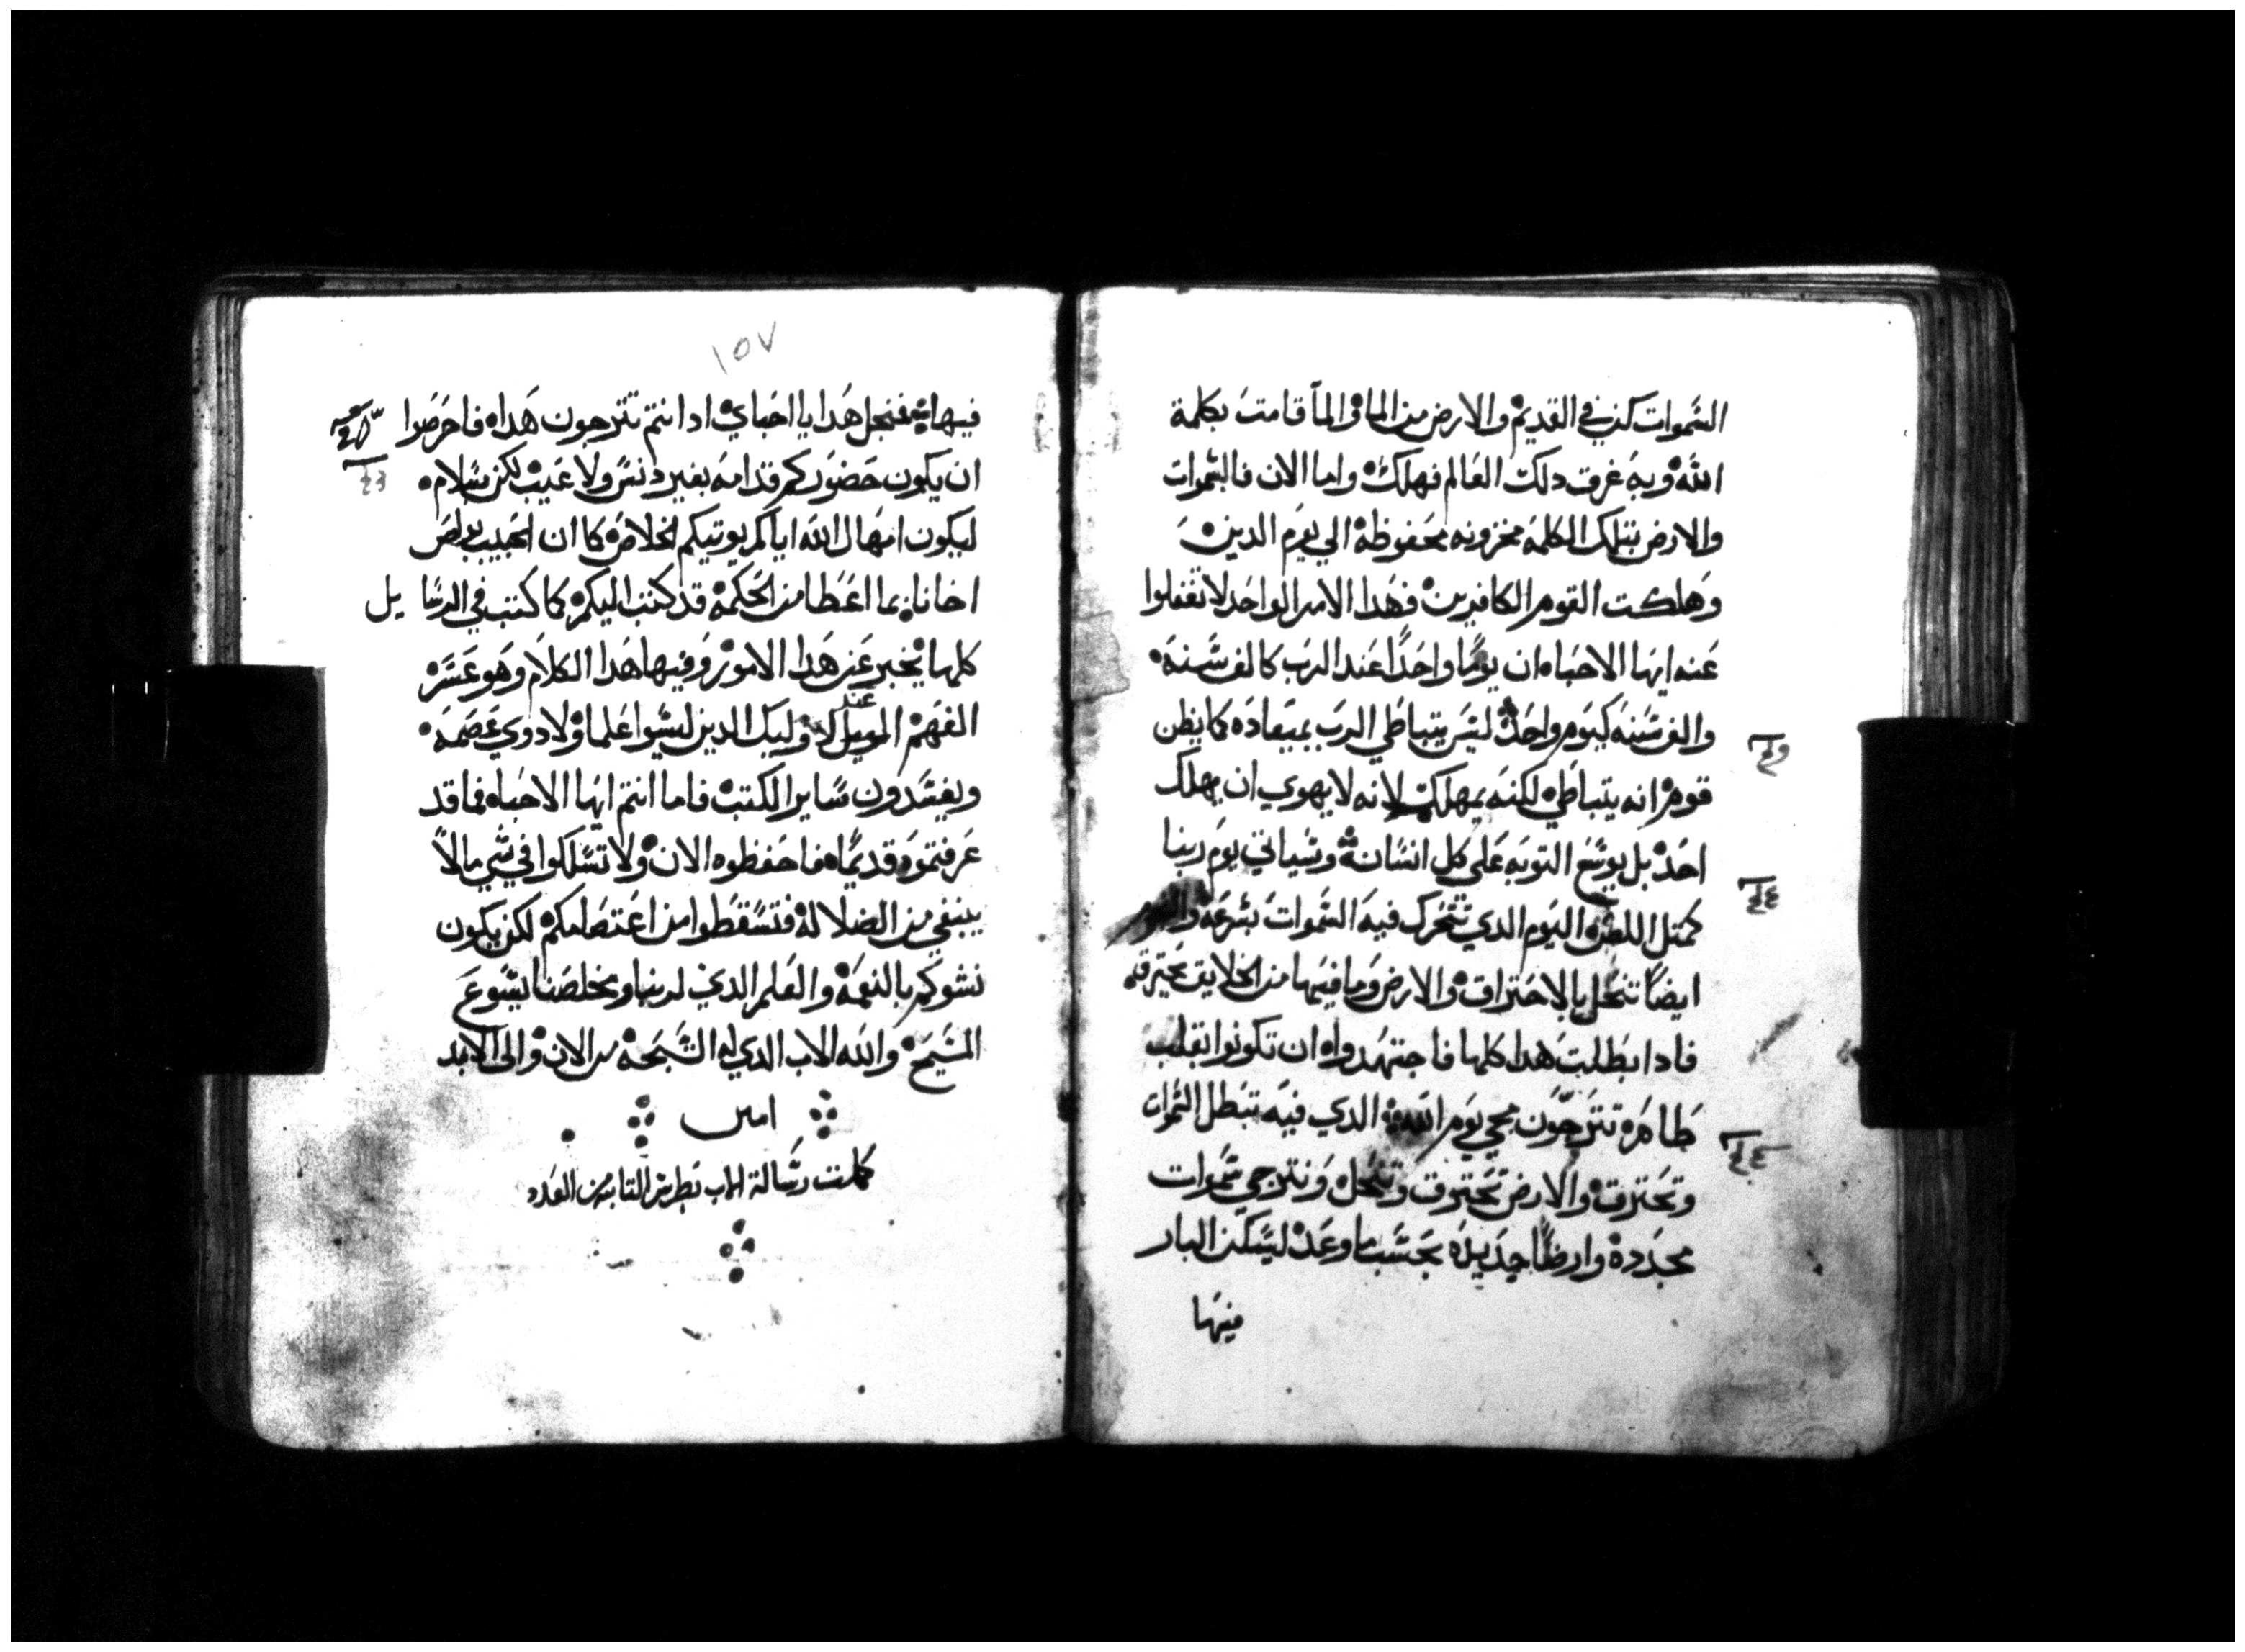 السموات كن في القديم والارض من الما والما قامت بكلمة
الله وبه غرق دلك العالم فهلك واما الان فالسموات
والارض بتلك الكلمه مخزونه محفوظه الي يوم الدين
وهلكت القوم الكافرين فهدا الامر الواحد لا تغفلوا
عنه ايها الاحباه ان يوما واحدا عند الرب كالف سنه
والف سنه كيوم واحد ليس يتباطي الرب بميعاده كما يظن
قوم انه يتباطي لكنه يمهلك لانه لا يهوي ان يهلك
احد بل يوسع التوبه علي كل انسان وسياتي يوم ربنا
كمتل اللص اليوم الدي تتحرك فيه السموات بسرعه
ايضا تنحل بالاحتراق والارض وما فيها من الخلايق تحترق
فادا بطلت هدا كلها فاجتهدوا ان تكونوا بقلب
طاهره تترجون مجي يوم الله الدي فيه تبطل السموات
وتحترق والارض تحترق وتنحل ونترجي سموات
مجدده وارضا جديده بحسب ما وعد ليسكن البار
فيها
١٥٧
فيها فنجل هدا يا احباي ادا انتم تترجون هدا فاحرصوا
ان يكون حضوركم قدامه بغير دنس ولا عيب لكن سلام
ليكون امهال الله اياكم يوتيكم الخلاص كما ان الحبيب بولص
اخانا بما اعطا من الحكمه قد كتب اليكم كما كتب في الرسايل
كلها يخبر عن هدا الامور وفيها هدا الكلام وهو عسر
الفهم عند اوليك الدين ليسوا علما ولا دوي عصمه
ويفسدون ساير الكتب فاما انتم ايها الاحباه فما قد
عرفتموه قديما فاحفظوه الان ولا تسلكوا في شي مالا
ينبغي من الضلاله فتسقطوا من اعتصامكم لكن يكون
نشوكم بالنعمه والعلم الدي لربنا ومخلصنا يسوع
المسيح والله الاب الدي له التسبحه من الان والى الابد
امين
كملت رسالة الاب بطرس التانيه من العدد